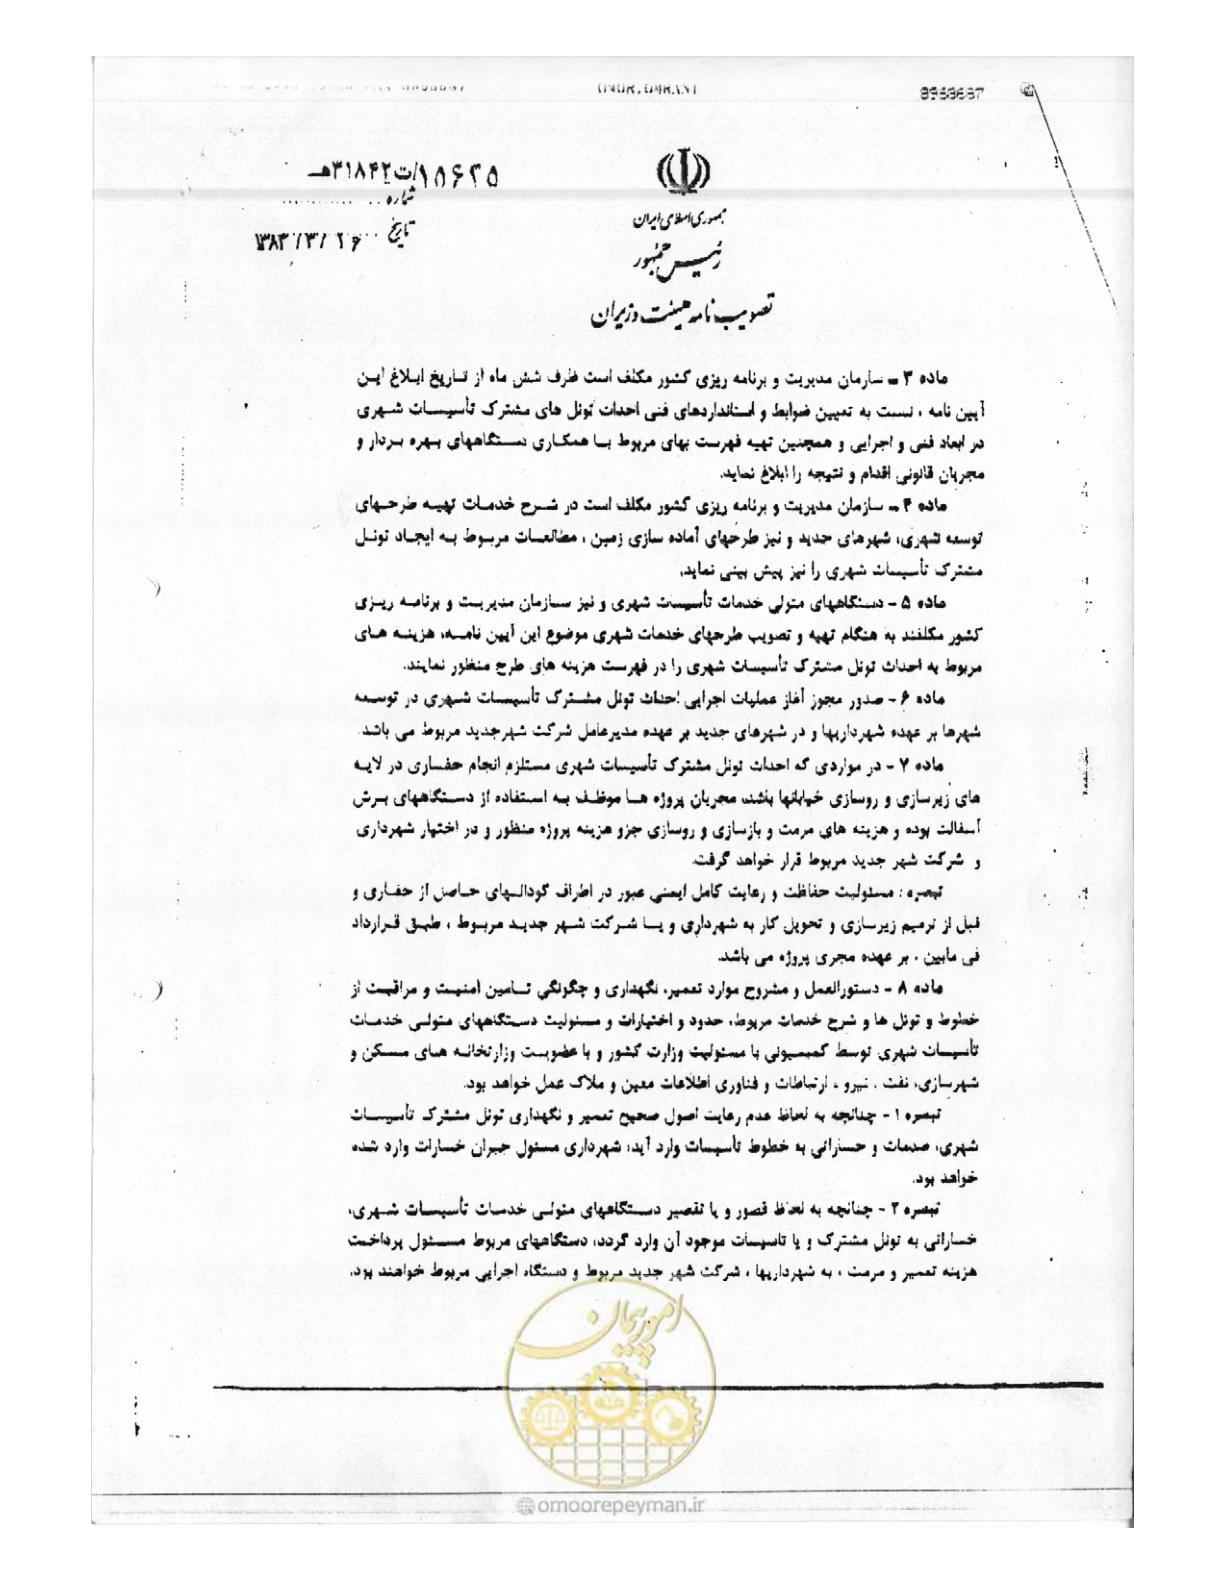 OMUR.OMRANI
8968687
۱۵۶۲۵/ت۳۱۸۴۲هـ
شماره
تاریخ ۱۳۸۳/۳/۲۶
جمهوری اسلامی ایران
رئیس جمهور
تصویب نامه هیئت وزیران
ماده ۳ – سازمان مدیریت و برنامه ریزی کشور مکلف است ظرف شش ماه از تاریخ ابلاغ این
آیین نامه ، نسبت به تعیین ضوابط و استانداردهای فنی احداث تونل های مشترک تأسیسات شهری
در ابعاد فنی و اجرایی و همچنین تهیه فهرست بهای مربوط با همکاری دستگاههای بهره بردار و
مجریان قانونی اقدام و نتیجه را ابلاغ نماید.
ماده ۴ – سازمان مدیریت و برنامه ریزی کشور مکلف است در شرح خدمات تهیه طرحهای
توسعه شهری، شهرهای جدید و نیز طرحهای آماده سازی زمین ، مطالعات مربوط به ایجاد تونل
مشترک تأسیسات شهری را نیز پیش بینی نماید.
ماده ۵ – دستگاههای متولی خدمات تأسیسات شهری و نیز سازمان مدیریت و برنامه ریزی
کشور مکلفند به هنگام تهیه و تصویب طرحهای خدمات شهری موضوع این آیین نامه، هزینه های
مربوط به احداث تونل مشترک تأسیسات شهری را در فهرست هزینه های طرح منظور نمایند.
ماده ۶ – صدور مجوز آغاز عملیات اجرایی احداث تونل مشترک تأسیسات شهری در توسعه
شهرها بر عهده شهرداریها و در شهرهای جدید بر عهده مدیرعامل شرکت شهرجدید مربوط می باشد.
ماده ۷ – در مواردی که احداث تونل مشترک تأسیسات شهری مستلزم انجام حفاری در لایه
های زیرسازی و روسازی خیابانها باشد، مجریان پروژه ها موظف به استفاده از دستگاههای برش
آسفالت بوده و هزینه های مرمت و بازسازی و روسازی جزو هزینه پروژه منظور و در اختیار شهرداری
و شرکت شهر جدید مربوط قرار خواهد گرفت.
تبصره : مسئولیت حفاظت و رعایت کامل ایمنی عبور در اطراف گودالهای حاصل از حفاری و
قبل از ترمیم زیرسازی و تحویل کار به شهرداری و یا شرکت شهر جدید مربوط ، طبق قرارداد
فی مابین ، بر عهده مجری پروژه می باشد.
ماده ۸ – دستورالعمل و مشروح موارد تعمیر، نگهداری و چگونگی تامین امنیت و مراقبت از
خطوط و تونل ها و شرح خدمات مربوط، حدود و اختیارات و مسئولیت دستگاههای متولی خدمات
تأسیسات شهری توسط کمیسیونی با مسئولیت وزارت کشور و با عضویت وزارتخانه های مسکن و
شهرسازی، نفت ، نیرو ، ارتباطات و فناوری اطلاعات معین و ملاک عمل خواهد بود.
تبصره ۱ – چنانچه به لحاظ عدم رعایت اصول صحیح تعمیر و نگهداری تونل مشترک تأسیسات
شهری، صدمات و خساراتی به خطوط تأسیسات وارد آید، شهرداری مسئول جبران خسارات وارد شده
خواهد بود.
تبصره ۲ – چنانچه به لحاظ قصور و یا تقصیر دستگاههای متولی خدمات تأسیسات شهری،
خساراتی به تونل مشترک و یا تاسیسات موجود آن وارد گردد، دستگاههای مربوط مسئول پرداخت
هزینه تعمیر و مرمت ، به شهرداریها ، شرکت شهر جدید مربوط و دستگاه اجرایی مربوط خواهند بود.
امور پیمان
omoorepeyman.ir